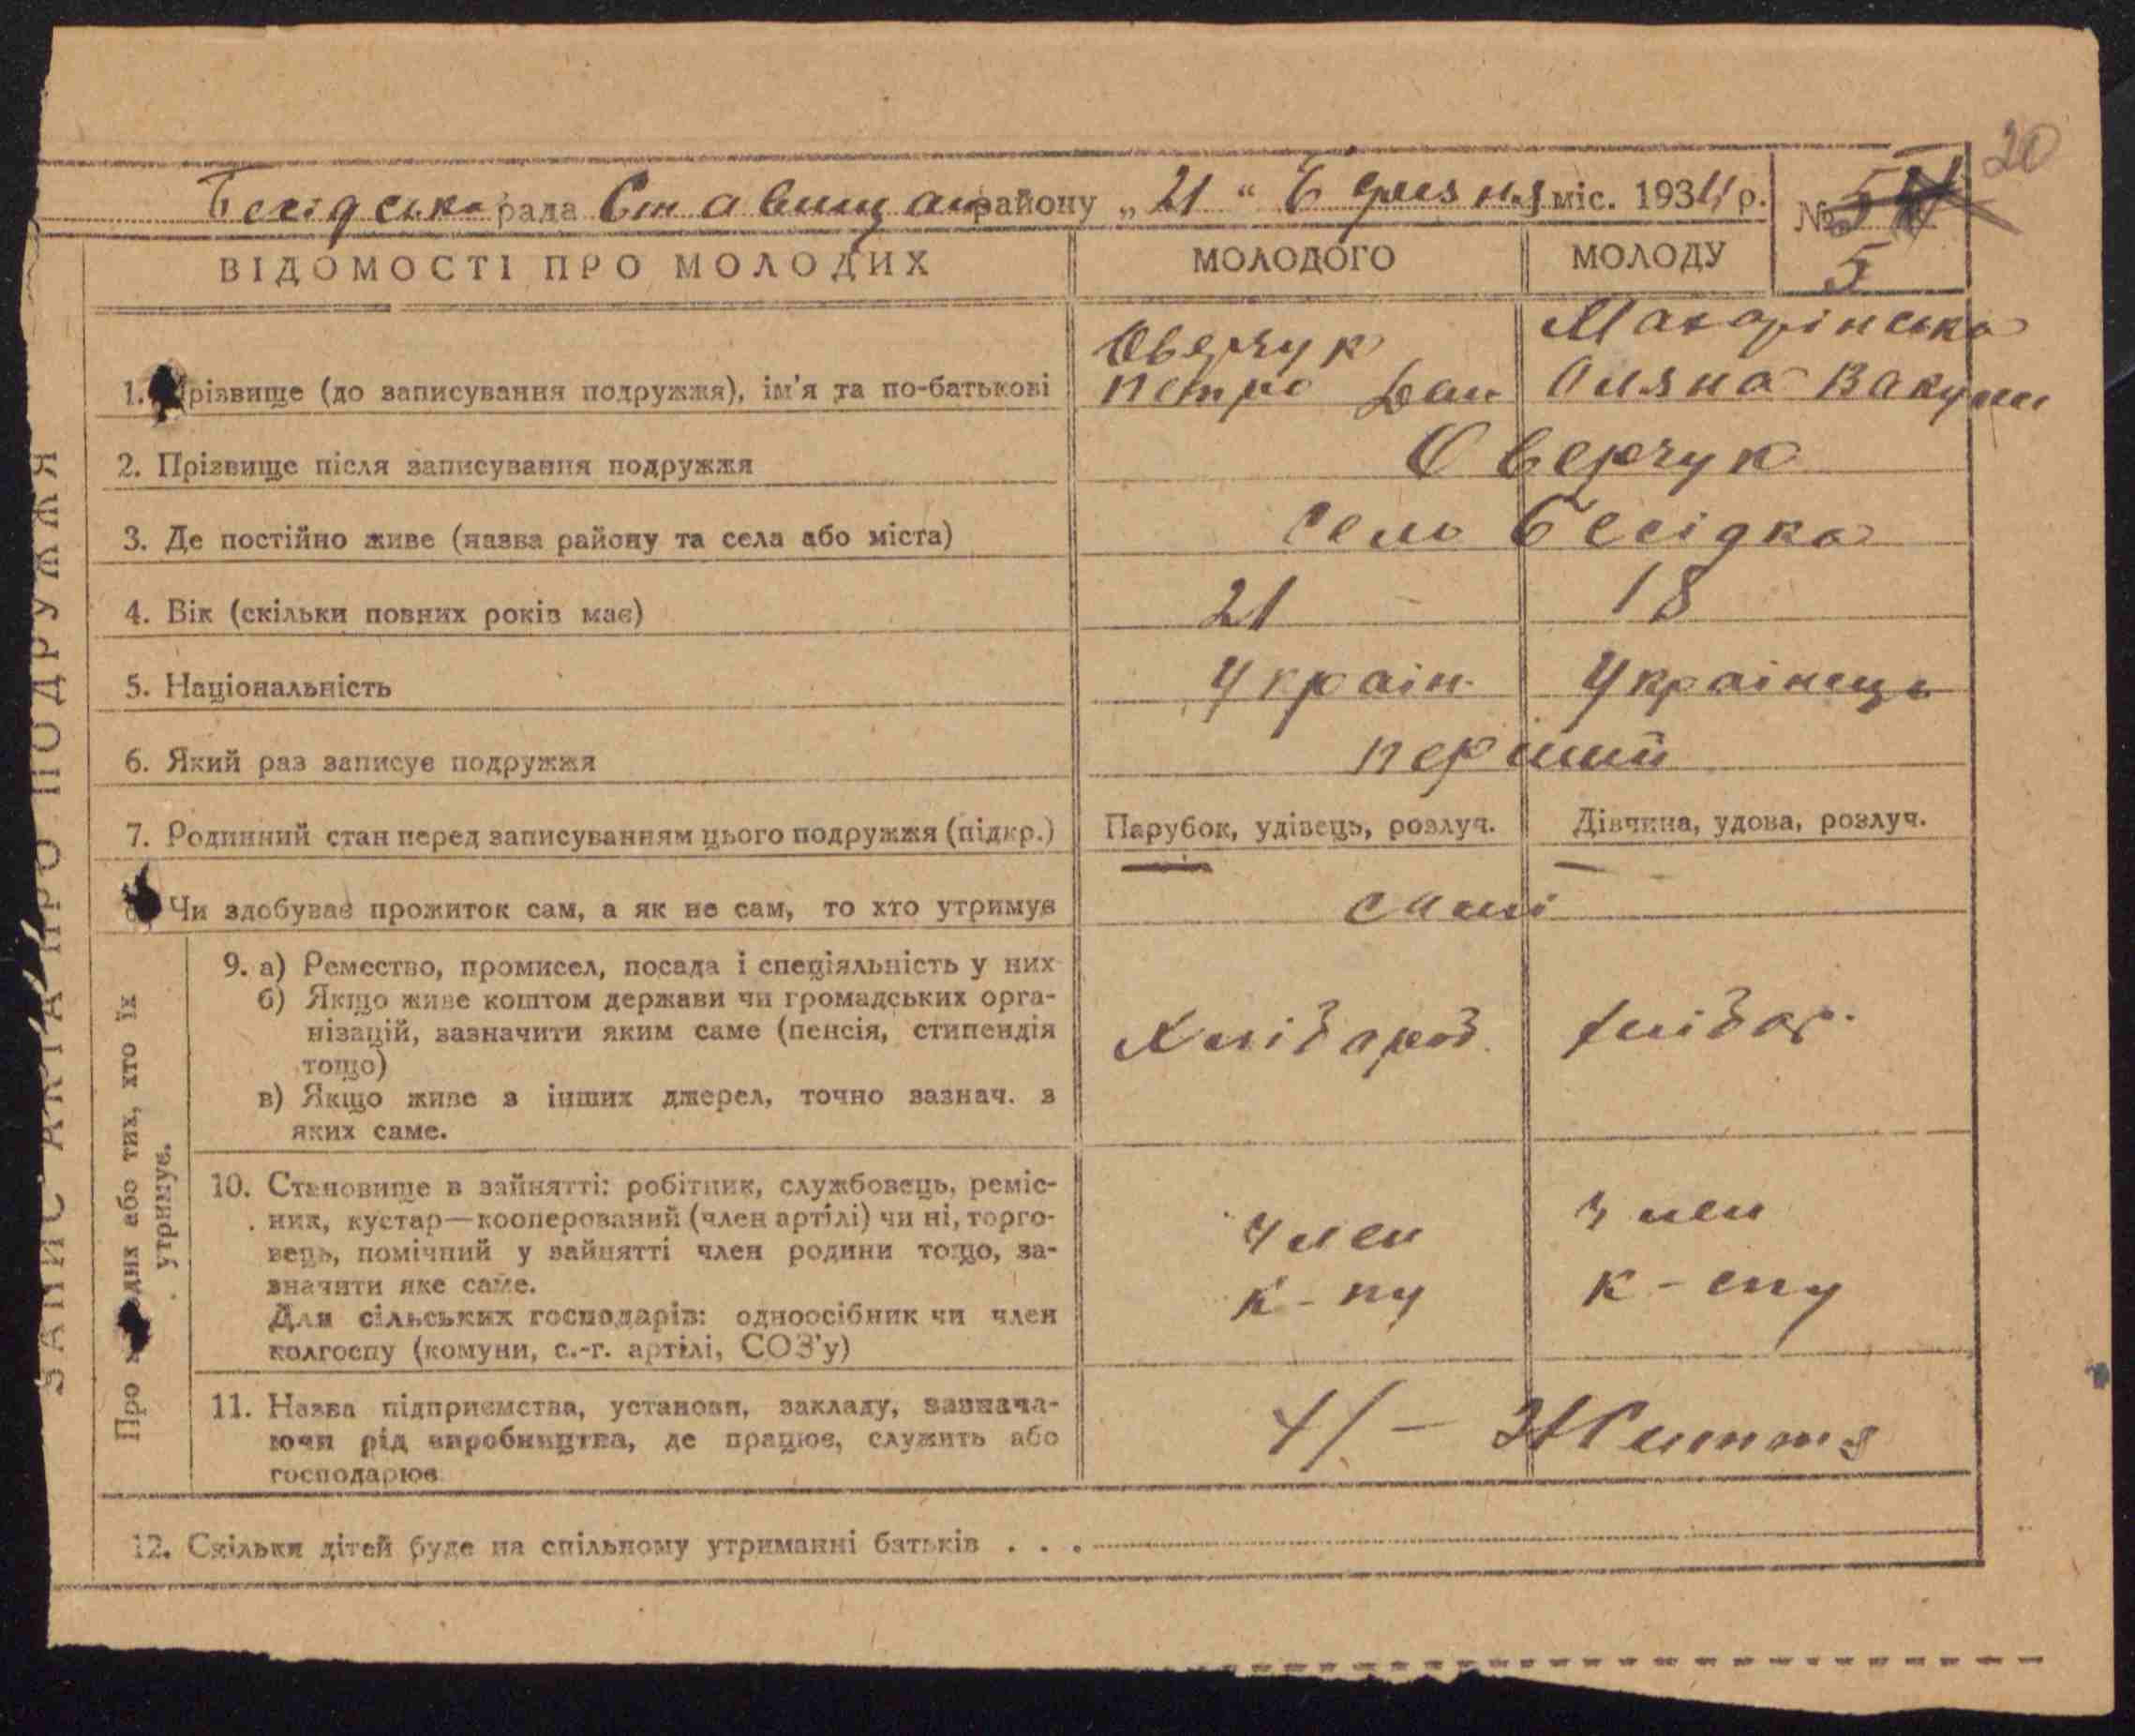 20
Бесідська рада Ставищан району „21“ березня міс. 1934 р. №
5
ВІДОМОСТІ ПРО МОЛОДИХ
МОЛОДОГО
МОЛОДУ
1. різвище (до записування подружжя), ім'я та по-батькові
Оверчук
Петро Дан
Макарінська
Оляна Вакули
2. Прізвище після записування подружжя
Оверчук
3. Де постійно живе (назва району та села або міста)
село Бесідка
4. Вік (скільки повних років має)
21
18
5. Національність
Україн.
Українець
6. Який раз записує подружжя
перший
7. Родинний стан перед записуванням цього подружжя (підкр.)
Парубок, удівець, розлуч.
Дівчина, удова, розлуч.
Чи здобуває прожиток сам, а як не сам, то хто утримує
самі
9. а) Ремество, промисел, посада і спеціяльність у них
б) Якщо живе коштом держави чи громадських орга-
нізацій, зазначити яким саме (пенсія, стипендія
тощо)
в) Якщо живе з інших джерел, точно зазнач. з
яких саме.
Хлібороб.
хлібор.
10. Становище в зайнятті: робітник, службовець, реміс-
ник, кустар—кооперований (член артілі) чи ні, торго-
вець, помічний у зайнятті член родини тощо, за-
значити яке саме.
Для сільських господарів: одноосібник чи член
колгоспу (комуни, с.-г. артілі, СОЗ'у)
член
к-пу
член
к-спу
11. Назва підприємства, установи, закладу, зазнача-
ючи рід виробництва, де працює, служить або
господарює
Життя
12. Скільки дітей буде на спільному утриманні батьків . . .
Про молодих або тих, хто їх
утримує.
ЗАПИС АКТА ПРО ПОДРУЖЖЯ